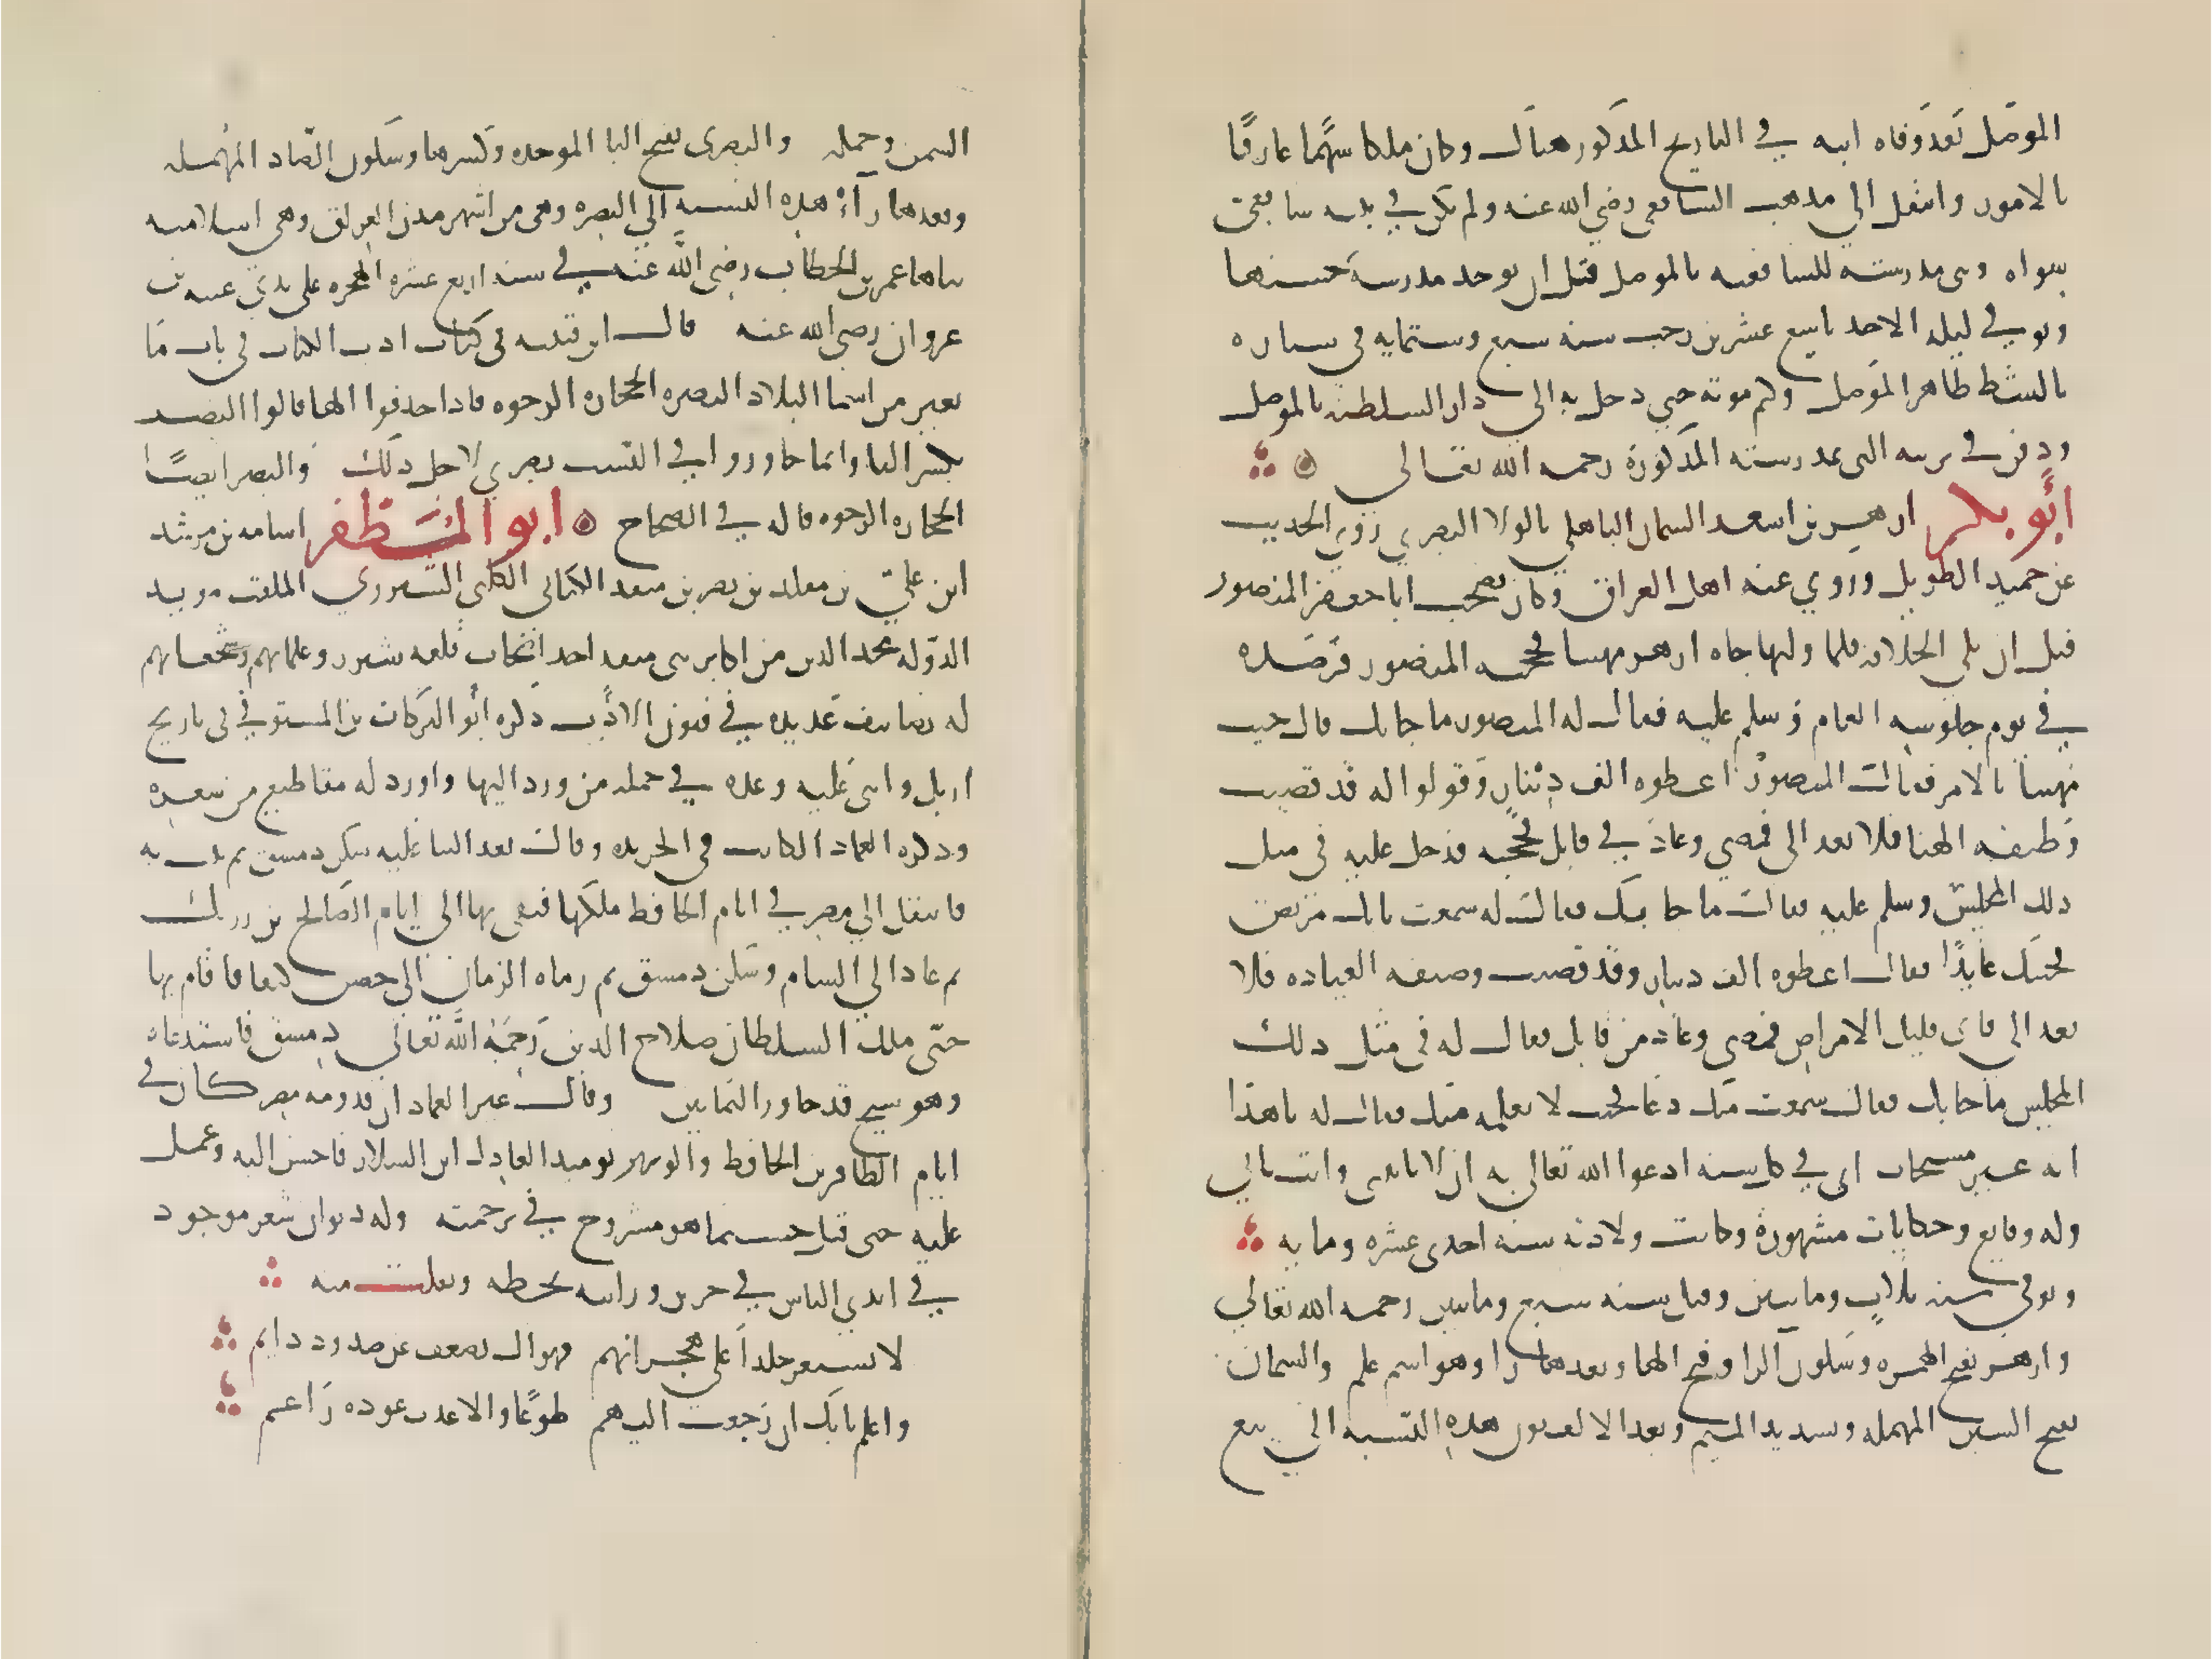 الموصل بعد وفاه ابيه في التاريخ المذكور هناك وكان ملكا شهما عارفا
بالامور وانتقل الى مذهب الشافعي رضي الله عنه ولم يكن في بيته شافعي
سواه وبنى مدرسته للشافعيه بالموصل قتل ان توجد مدرسة حسنها
وتوفي ليله الاحد تاسع عشرين رجب سنه سبع وستمايه في سباره
بالشط ظاهر الموصل وكتم موته حتى دخل به الى دار السلطنه بالموصل
ودفن في تربته التي بمدرسته المذكورة رحمه الله تعالى
أبو بكر ازهر بن اسعد السمان الباهلي بالولا البصري روى الحديث
عن حميد الطويل وروي عنه اهل العراق وكان يصحب ابا جعفر المنصور
قبل ان يلي الخلافه فلما وليها جاه ازهر مهنيا فحجبه المنصور فرصده
في يوم جلوسه العام وسلم عليه فقال له المنصور ما جا بك قال جيت
مهنيا بالامر فقال المنصور اعطوه الف دينار وقولوا له قد قضيت
وظيفه الهنا فلا تعد الى فمضى وعاد في قابل فحجبه فدخل عليه في مثل
ذلك المجلس وسلم عليه فقال ما جا بك فقال له سمعت بانك مرضت
فجيتك عايدا فقال اعطوه الف دينار وقد قضيت وضيفه العياده فلا
تعد الى فاني قليل الامراض فمضى وعاد من قابل فقال له في مثل ذلك
المجلس ما جا بك فقال سمعت منك دعا فجيت لا تعلمه منك فقال له يا هذا
انه غير مستجاب اني في كل سنه ادعوا الله تعالى به ان لا تاتيني وانت تاتي
وله وقايع وحكايات مشهورة وكانت ولادته سنه احدى عشره ومايه
وتوفي سنه ثلاث ومايتين وقيل سنه سبع ومايتين رحمه الله تعالى
وازهر بفتح الهمزه وسكون الزا وفتح الها وبعدها را وهو اسم علم والسمان
بفتح السين المهمله وتشديد الميم وبعد الالف نون هذه النسبه الى بيع
السمن وحمله والبصرى بفتح البا الموحده وكسرها وسكون الصاد المهمله
وبعدها رآء هذه النسبه الى البصره وهي من اشهر مدن العراق وهي اسلاميه
بناها عمر بن الخطاب رضي الله عنه في سنه اربع عشره الهجره على يدي عتبه بن
عزوان رضي الله عنه قال ابن قتيبه في كتاب ادب الكتاب في باب ما
تغير من اسما البلاد البصره الحجاره الرخوه فاذا حذفوا الها قالوا البصر
بكسر البا وانما جاوزوا في النسب بصري لاجل ذلك والبصر ايضا
الحجاره الرخوه قاله في الصحاح ابو المظفر اسامه بن مرشد
ابن علي بن مقلد بن نصر بن منقد الكناني الكلبي الشيزوري الملقب مويد
الدوله مجد الدين من اكابر بني منقد احد اصحاب قلعه شيزر وعلمايهم وشجعانهم
له تصانيف عديده في فنون الادب ذكره أبو البركات بن المستوفي في تاريخ
اربل واثنى عليه وعده في جمله من ورد اليها واورد له مقاطيع من شعره
وذكره العماد الكاتب في الخريده وقال بعد الثنا عليه سكن دمشق ثم نبت به
فانتقل الى مصر في ايام الحافظ ملكها فبقى بها الى ايام الصالح بن رزيك
ثم عاد الى الشام وسكن دمشق ثم رماه الزمان الى حصن كيفا فاقام بها
حتى ملك السلطان صلاح الدين رحمه الله تعالى دمشق فاستدعاه
وهو شيخ قد جاوز الثمانين وقال غير العماد ان قدومه مصر كان في
ايام الظافر بن الحافظ والوزير يوميد العادل ابن السلار فاحسن اليه وعمل
عليه حتى قتل حسبما هو مشروح في ترجمته وله ديوان شعر موجود
في ايدي الناس في جزين ورايته بخطه ونقلت منه
لا تستعر جلدا على هجرانهم فقواك تضعف عن صدود دايم
واعلم بانك ان رجعت اليهم طوعا والا عدت عوده راغم